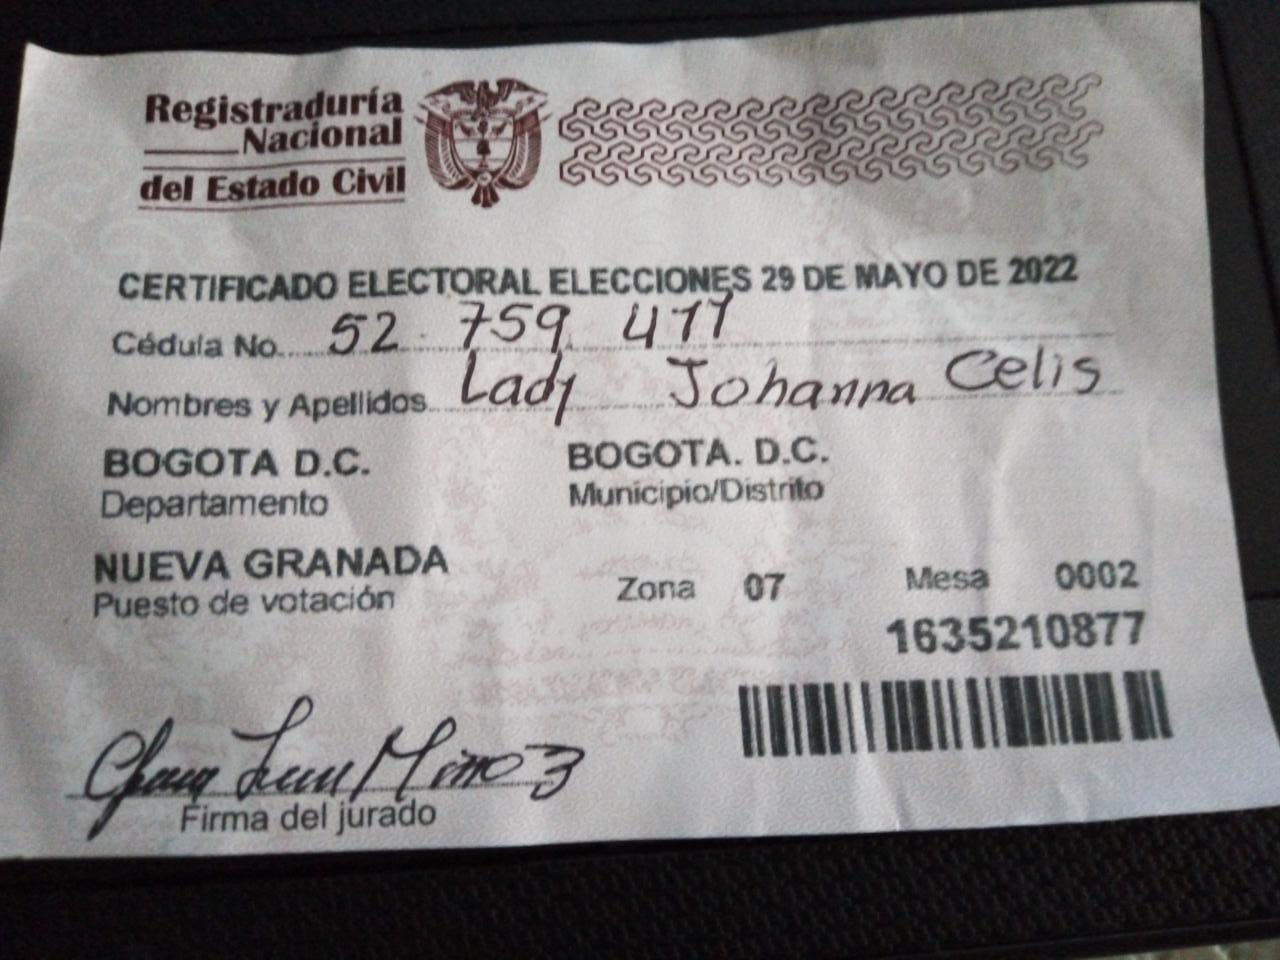 Registraduría
Nacional
del Estado Civil
CERTIFICADO ELECTORAL ELECCIONES 29 DE MAYO DE 2022
Cédula No. 52 759 477
Nombres y Apellidos Lady Johanna Celis
BOGOTA D.C. BOGOTA. D.C.
Departamento Municipio/Distrito
NUEVA GRANADA
Puesto de votación Zona 07 Mesa 0002
1635210877
Firma del jurado